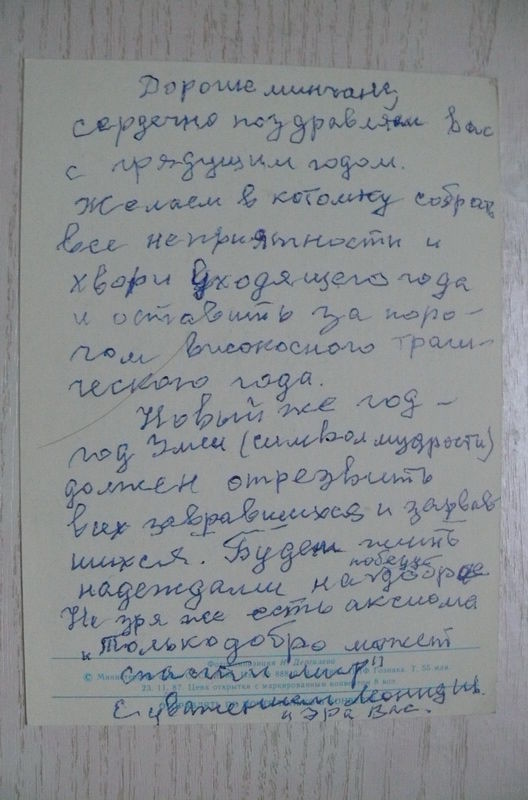 Дорогие минчане,
сердечно поздравляем Вас
с грядущим годом.
Желаем в котомку собрать
все неприятности и
хвори уходящего года
и оставить за поро-
гом високосного траги-
ческого года.
Новый же год -
год Змеи (символ мудрости)
должен отрезвить
всех завравшихся и зарвав-
шихся. Будем жить
надеждами на победу добра
Не зря же есть аксиома
"Только добро может
спасти мир"
С уважением Леонид
и Эра Вас.
Дергилева
© Мини
23. 11. 87. Цена открытки с маркированным конвертом 8 коп.